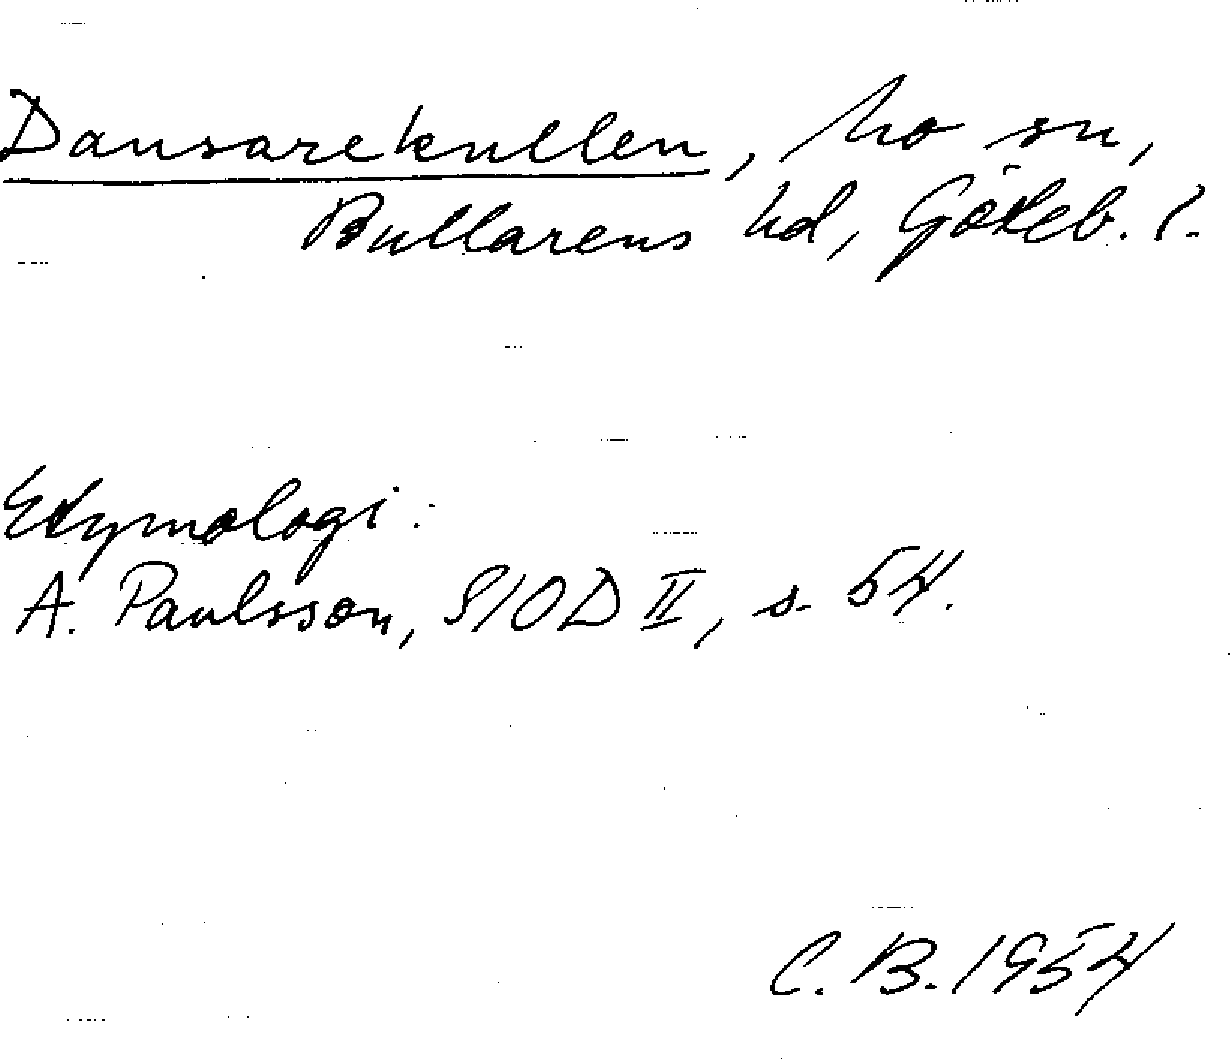 Dansarekullen, Mo sn,
Bullarens hd, Göteb. l.
Etymologi:
A. Paulsson, SIOD II, s. 54.
C. B. 1954